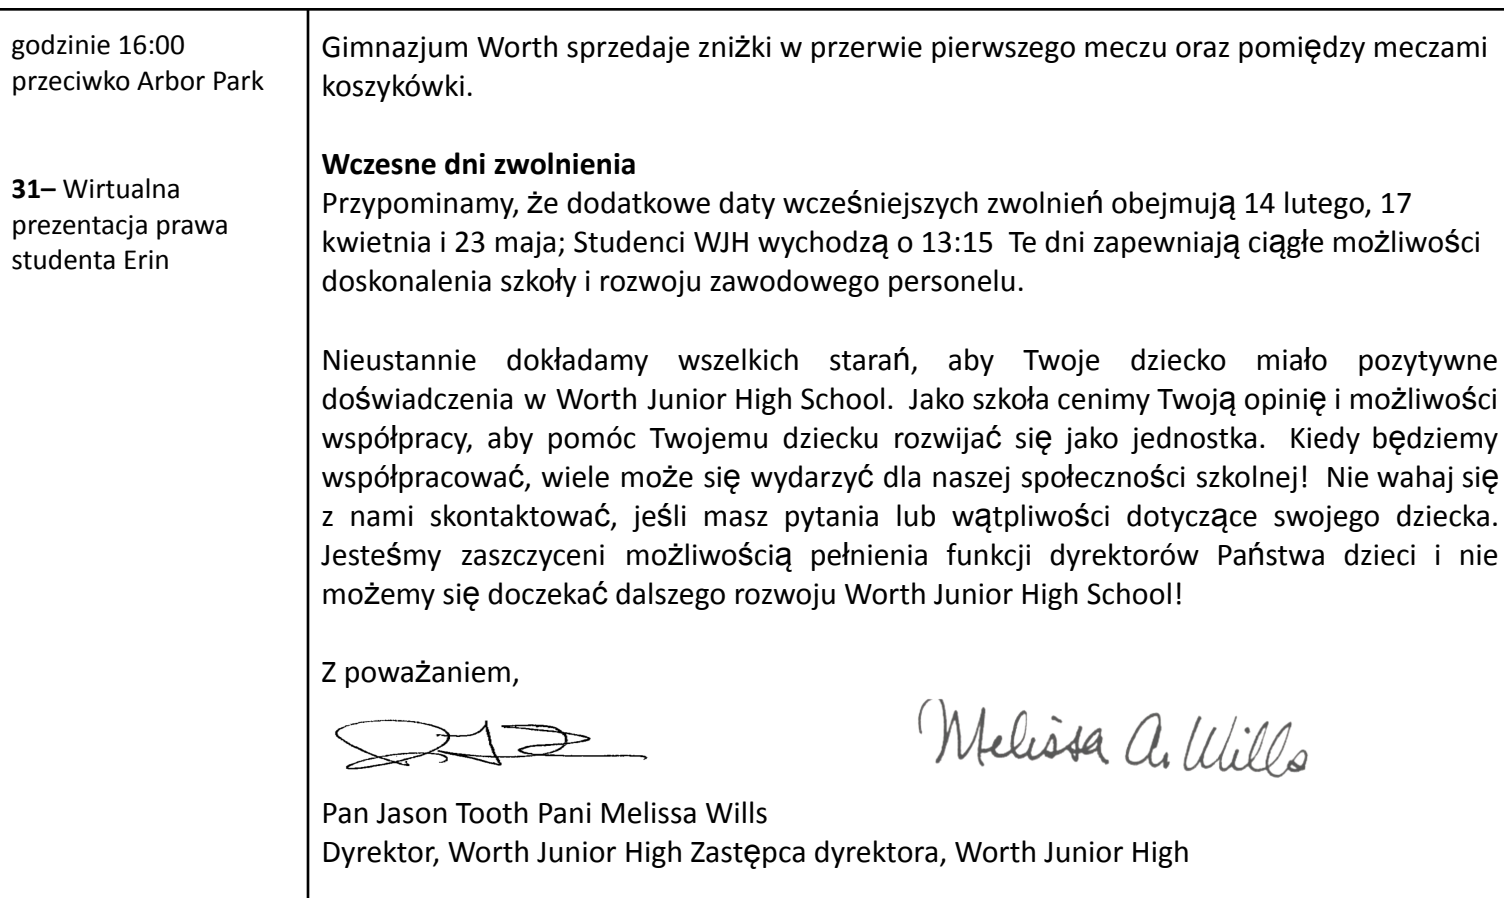 godzinie 16:00
przeciwko Arbor Park
31– Wirtualna
prezentacja prawa
studenta Erin
Gimnazjum Worth sprzedaje zniżki w przerwie pierwszego meczu oraz pomiędzy meczami
koszykówki.
Wczesne dni zwolnienia
Przypominamy, że dodatkowe daty wcześniejszych zwolnień obejmują 14 lutego, 17
kwietnia i 23 maja; Studenci WJH wychodzą o 13:15  Te dni zapewniają ciągłe możliwości
doskonalenia szkoły i rozwoju zawodowego personelu.
Nieustannie dokładamy wszelkich starań, aby Twoje dziecko miało pozytywne
doświadczenia w Worth Junior High School.  Jako szkoła cenimy Twoją opinię i możliwości
współpracy, aby pomóc Twojemu dziecku rozwijać się jako jednostka.  Kiedy będziemy
współpracować, wiele może się wydarzyć dla naszej społeczności szkolnej!  Nie wahaj się
z nami skontaktować, jeśli masz pytania lub wątpliwości dotyczące swojego dziecka.
Jesteśmy zaszczyceni możliwością pełnienia funkcji dyrektorów Państwa dzieci i nie
możemy się doczekać dalszego rozwoju Worth Junior High School!
Z poważaniem,
Melissa A. Wills
Pan Jason Tooth Pani Melissa Wills
Dyrektor, Worth Junior High Zastępca dyrektora, Worth Junior High